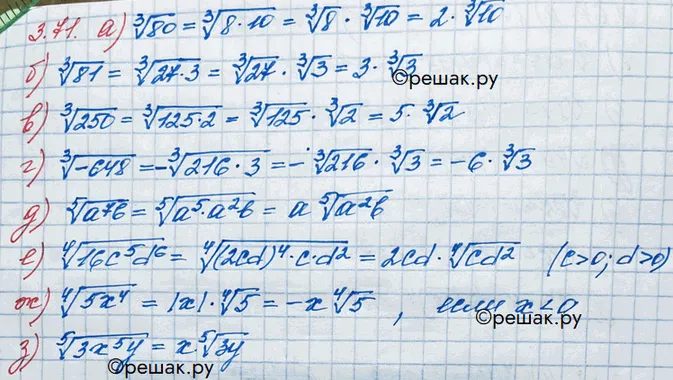 3.71. а) ∛80 = ∛(8·10) = ∛8 · ∛10 = 2·∛10
б) ∛81 = ∛(27·3) = ∛27 · ∛3 = 3·∛3
©решак.ру
в) ∛250 = ∛(125·2) = ∛125 · ∛2 = 5·∛2
г) ∛(-648) = -∛(216·3) = -∛216 · ∛3 = -6·∛3
д) ⁵√(a⁷b) = ⁵√(a⁵·a²b) = a ⁵√(a²b)
е) ⁴√(16c⁵d⁶) = ⁴√((2cd)⁴·c·d²) = 2cd·⁴√(cd²) (c>0; d>0)
ж) ⁴√(5x⁴) = |x|·⁴√5 = -x ⁴√5, если x<0
©решак.ру
з) ⁵√(3x⁵y) = x ⁵√(3y)
©решак.ру